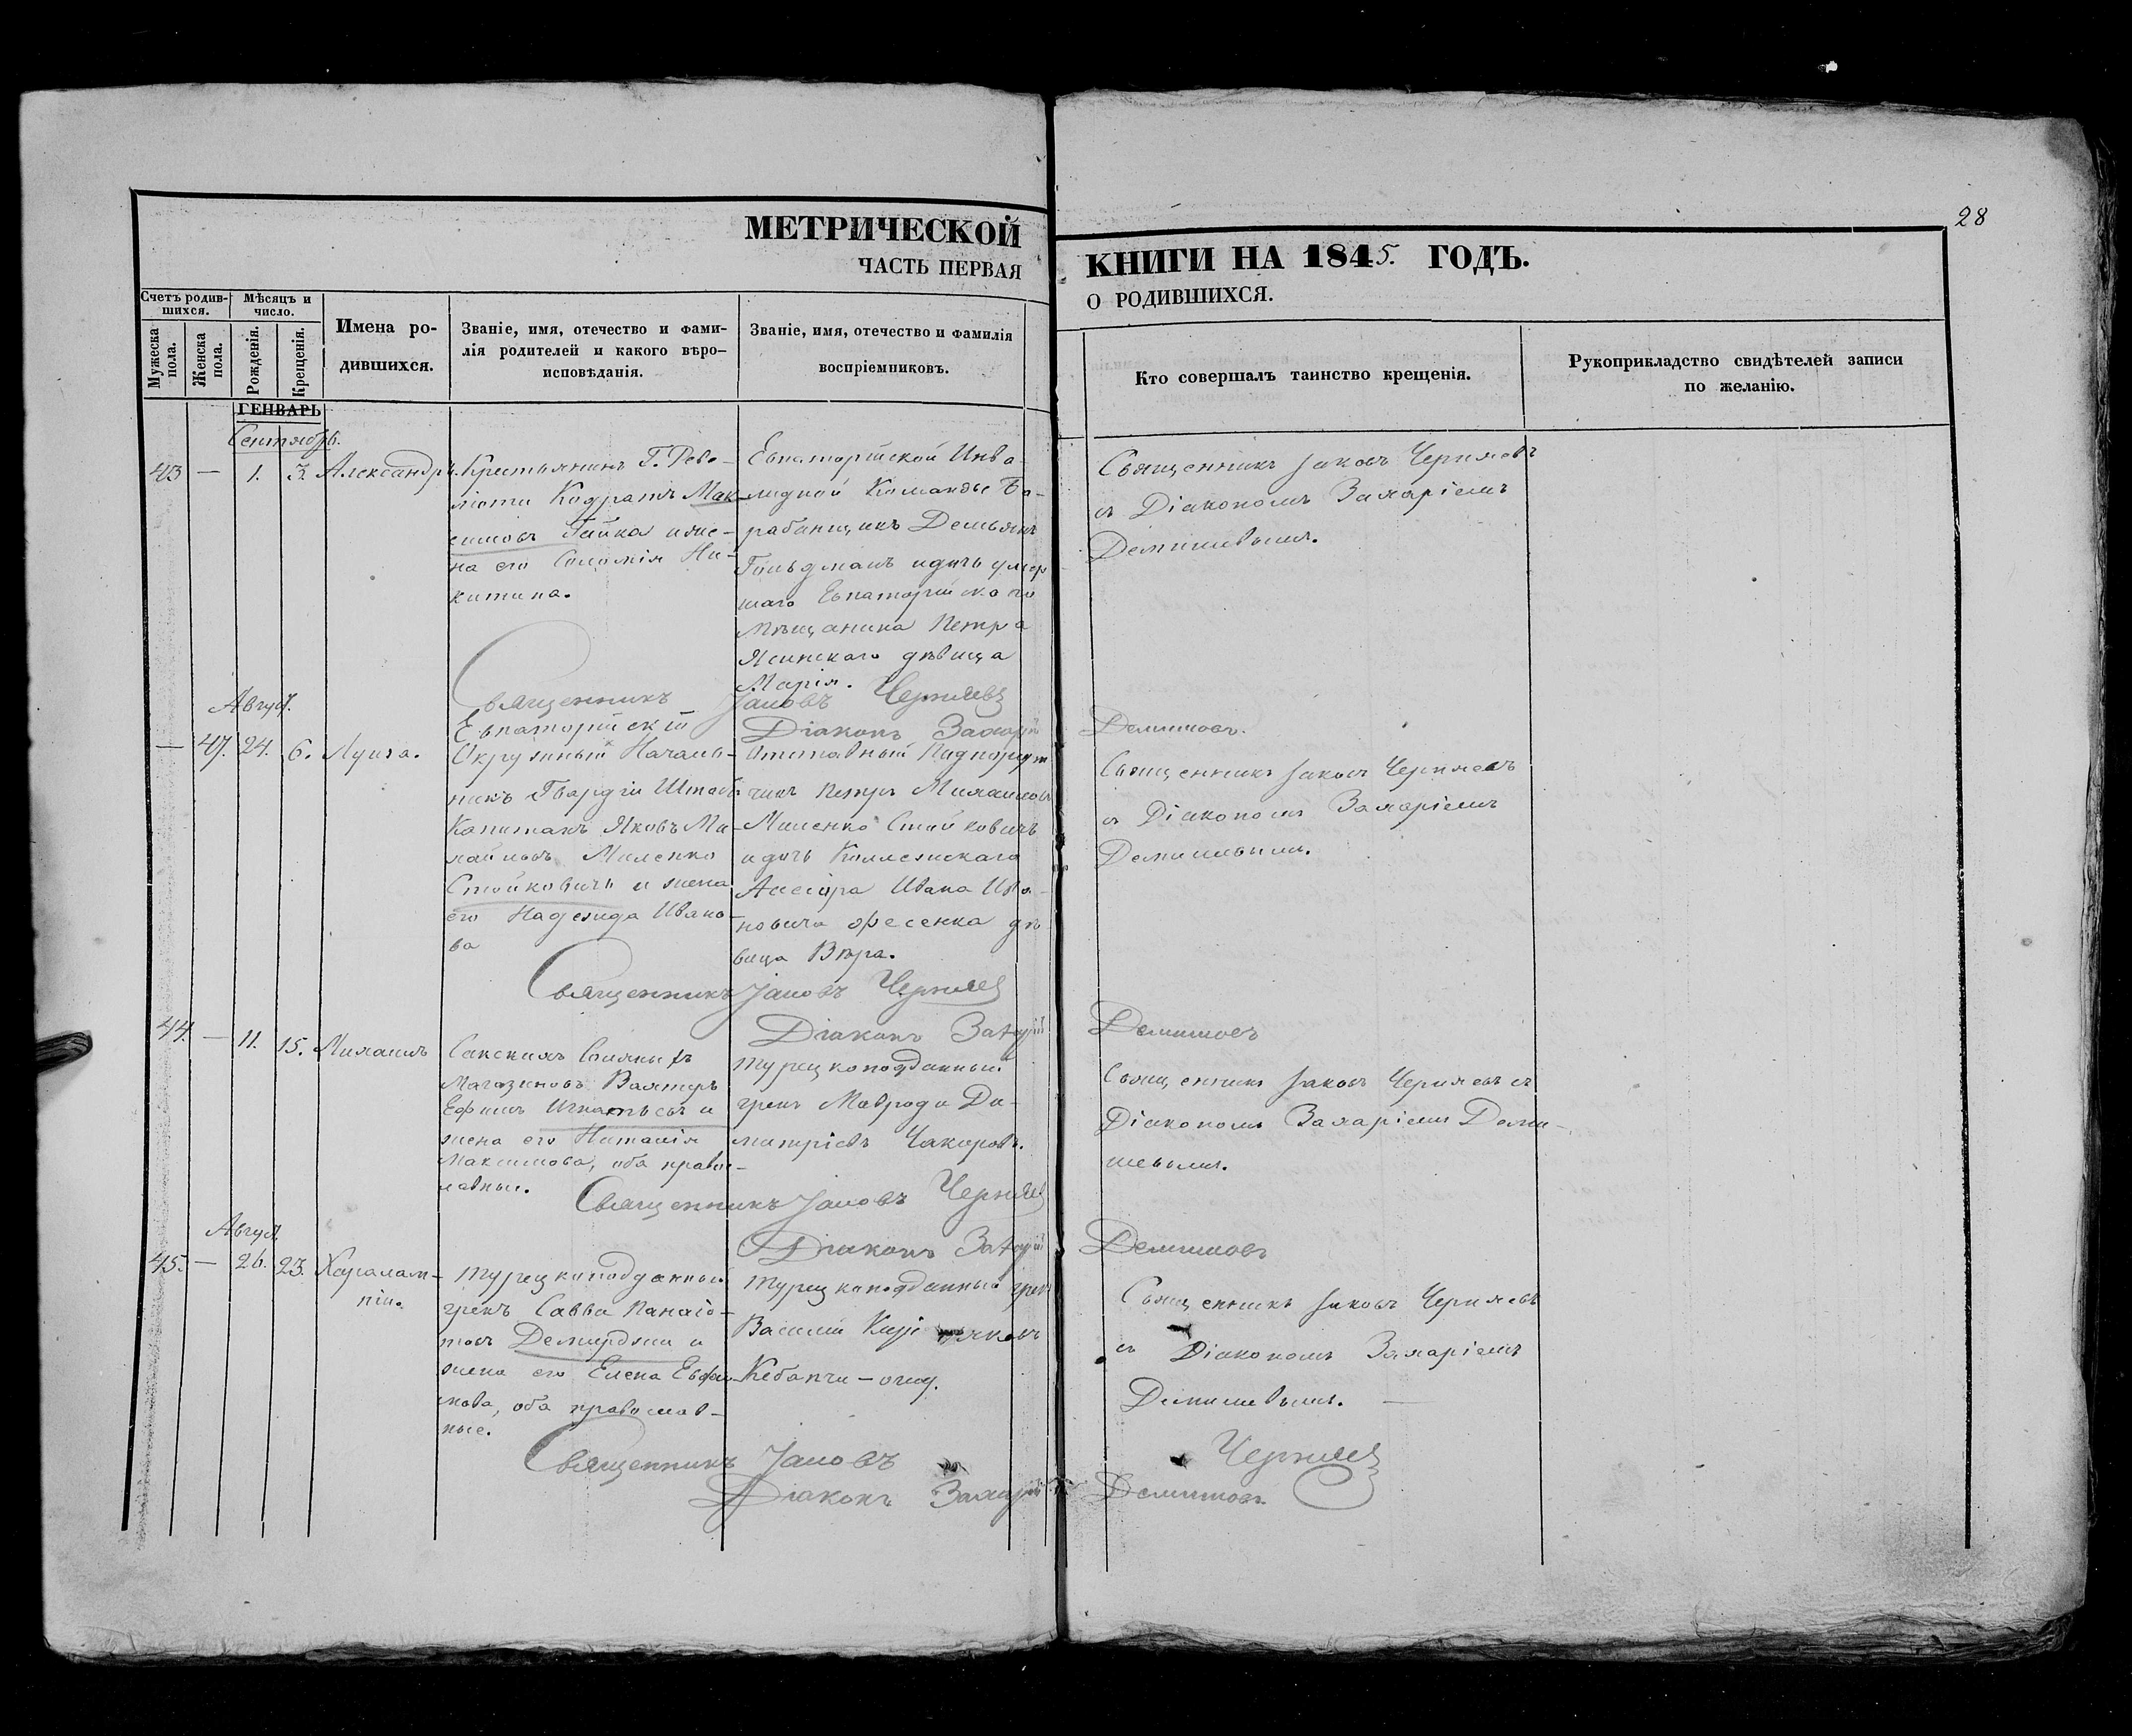 28
МЕТРИЧЕСКОЙ
ЧАСТЬ ПЕРВАЯ
КНИГИ НА 1845. ГОДЪ.
О РОДИВШИХСЯ.
Счетъ родив-
шихся.
Мѣсяцъ и
число.
Мужеска
пола.
Женска
пола.
Рожденія.
Крещенія.
Имена ро-
дившихся.
Званіе, имя, отечество и фами-
лія родителей и какого вѣро-
исповѣданія.
Званіе, имя, отечество и фамилія
воспріемниковъ.
Кто совершалъ таинство крещенія.
Рукоприкладство свидѣтелей записи
по желанію.
ГЕНВАРЬ
Сентябрь.
43 — 1. 3. Александръ.
Крестьянинъ Г. Рево-
Кодратъ Мак-
симовъ Гайка и же-
на его Соломія Ни-
китина.
Евпаторійской Инва-
лидной Команды Ба-
рабанщикъ Демьянъ
Гольдманъ и дочь умер
шаго Евпаторійскаго
Мѣщанина Петра
Ясинскаго дѣвица
Марія.
Священникъ Іаковъ Черняевъ
съ Діакономъ Захаріемъ
Демишевымъ.
Священникъ Іаковъ Черняевъ
Діаконъ Захарій Демишевъ.
Август.
— 47. 24. 6. Луиза.
Евпаторійскій
Окружный Началь-
никъ Гвардіи Штабсъ
Капитанъ Яковъ Ми-
хайловъ Миленко
Стойковичъ и жена
его Надежда Ивано-
ва
Отставный Подпорут
чикъ Петръ Михайловъ
Миленко Стойковичъ
и дочь Коллежскаго
Асесора Ивана Ива-
новича Фесенка дѣ-
вица Вѣра.
Священникъ Іаковъ Черняевъ
съ Діакономъ Захаріемъ
Демишевымъ.
Священникъ Іаковъ Черняевъ
Діаконъ Захарій Демишевъ
44. — 11. 15. Михаилъ
Сакскихъ Соляныхъ
Магазиновъ Вахтеръ
Ефимъ Игнатьевъ и
жена его Наталія
Максимова, оба право-
славные.
Турецкоподданный
грекъ Мавроди Ди-
митріевъ Чакировъ.
Священникъ Іаковъ Черняевъ съ
Діакономъ Захаріемъ Деми-
шевымъ.
Священникъ Іаковъ Черняевъ
Діаконъ Захарій Демишевъ
Август.
45. — 26. 23. Харалам-
пій.
Турецкоподданный
грекъ Савва Панаіо-
товъ Демирджи и
жена его Елена Евфи-
мова, оба православ-
ные.
Турецкоподданный грекъ
Василій
Кебапчи-оглу.
Священникъ Іаковъ Черняевъ
съ Діакономъ Захаріемъ
Демишевымъ. —
Священникъ Іаковъ Черняевъ
Діаконъ Захарій Демишевъ.